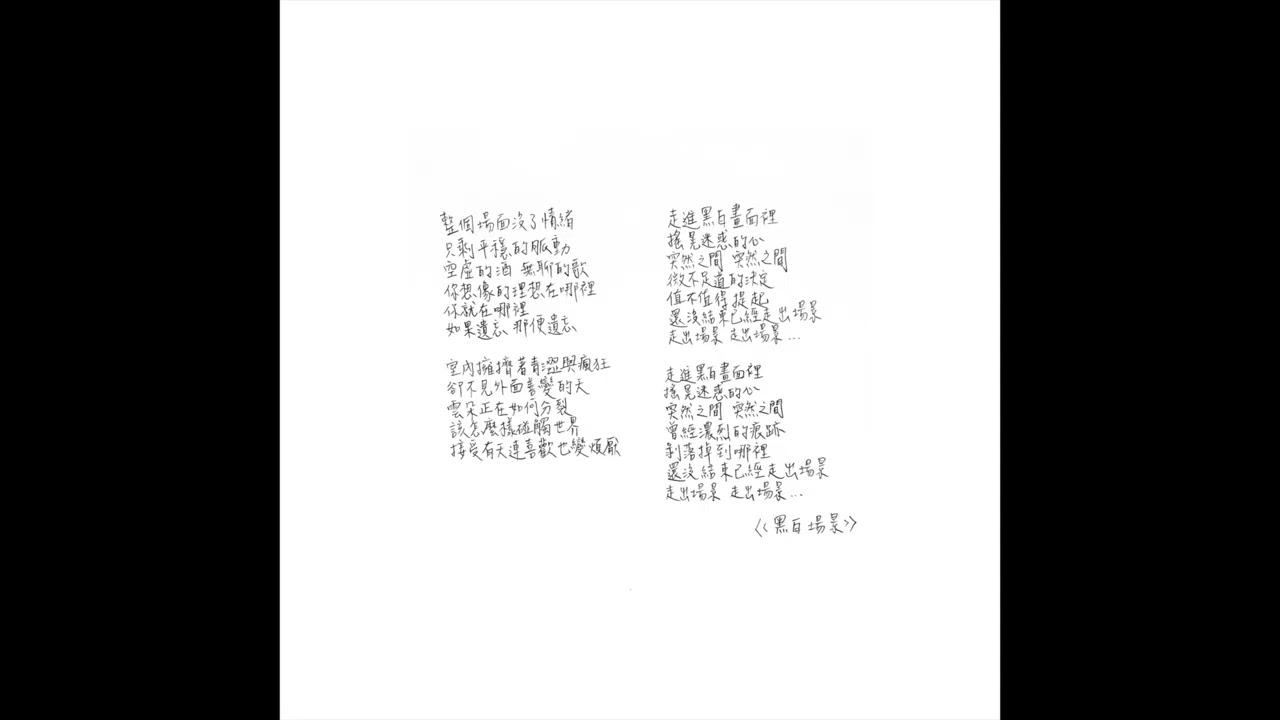 整個場面沒了情緒
只剩平穩的脈動
空虛的酒 無聊的歌
你想像的理想在哪裡
你就在哪裡
如果遺忘 那便遺忘
室內擁擠著青澀與瘋狂
卻不見外面善變的天
雲朵正在如何分裂
該怎麼樣碰觸世界
接受有天連喜歡也變煩厭
走進黑白畫面裡
搖晃迷惑的心
突然之間 突然之間
微不足道的決定
值不值得提起
還沒結束已經走出場景
走出場景 走出場景...
走進黑白畫面裡
搖晃迷惑的心
突然之間 突然之間
曾經濃烈的痕跡
剝落掉到哪裡
還沒結束已經走出場景
走出場景 走出場景...
《黑白場景》